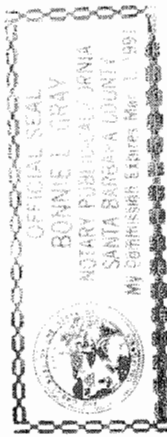 OFFICIAL SEAL
BONNIE L. GRAY
NOTARY PUBLIC-CALIFORNIA
SANTA BARBARA COUNTY
My Commission Expires Mar. 1, 1991